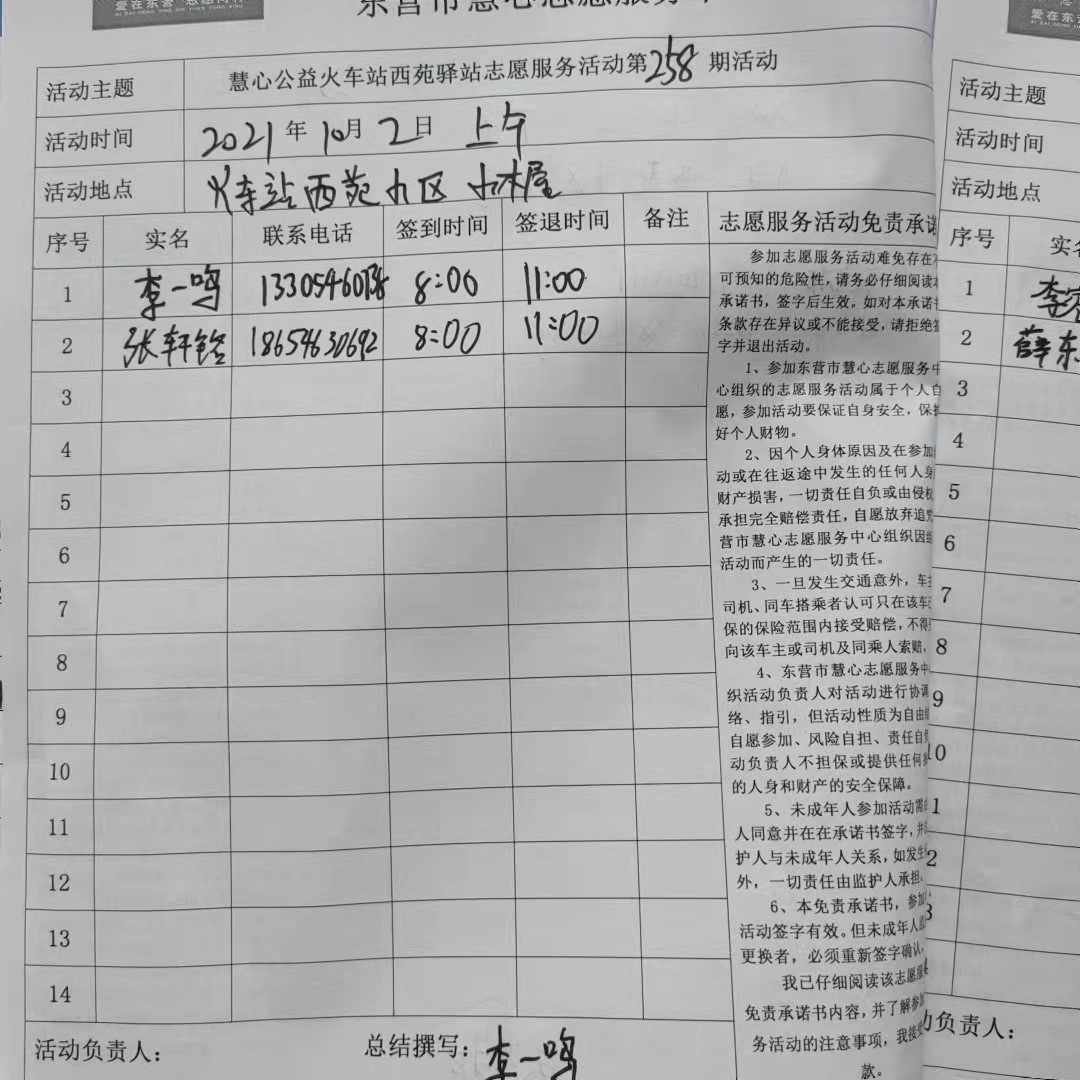 爱在东营
爱在东营
活动主题 慧心公益火车站西苑驿站志愿服务活动第258期活动
活动时间 2021年10月2日 上午
活动地点 火车站西苑九区 小木屋
序号 实名 联系电话 签到时间 签退时间 备注 志愿服务活动免责承诺
1 李一鸣 8:00 11:00
2 张轩铭 18654630692 8:00 11:00
3
4
5
6
7
8
9
10
11
12
13
14
参加志愿服务活动难免存在不
可预知的危险性,请务必仔细阅读本
承诺书,签字后生效。如对本承诺书
条款存在异议或不能接受,请拒绝签
字并退出活动。
1、参加东营市慧心志愿服务中
心组织的志愿服务活动属于个人自
愿,参加活动要保证自身安全,保
好个人财物。
2、因个人身体原因及在参加
动或在往返途中发生的任何人身
财产损害,一切责任自负或由侵权
承担完全赔偿责任,自愿放弃追究
营市慧心志愿服务中心组织因组
活动而产生的一切责任。
3、一旦发生交通意外,车主
司机、同车搭乘者认可只在该车
保的保险范围内接受赔偿,不得
向该车主或司机及同乘人索赔,
4、东营市慧心志愿服务中
织活动负责人对活动进行协调
络、指引,但活动性质为自由组
自愿参加、风险自担、责任自负
动负责人不担保或提供任何
的人身和财产的安全保障。
5、未成年人参加活动需
人同意并在在承诺书签字,并
护人与未成年人关系,如发生
外,一切责任由监护人承担
6、本免责承诺书,参加
活动签字有效。但未成年人
更换者,必须重新签字确认
我已仔细阅读该志愿服
免责承诺书内容,并了解参
务活动的注意事项,我接受
款。
活动负责人: 总结撰写:李一鸣
活动主题
活动时间
活动地点
序号 实名
1 李
2 薛东
3
4
5
6
7
8
9
10
活动负责人: